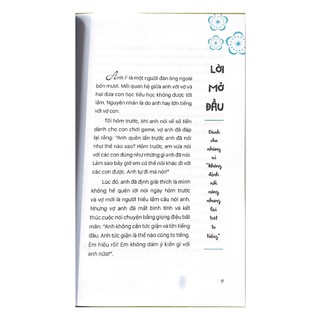 LỜI
MỞ
ĐẦU
Dành
cho
những
ai
"không
định
nổi
nóng
nhưng
lại
trót
to
tiếng"
Anh I' là một người đàn ông ngoài
bốn mươi. Mối quan hệ giữa anh với vợ và
hai đứa con học tiểu học không được tốt
lắm. Nguyên nhân là do anh hay lớn tiếng
với vợ con.
Tối hôm trước, khi anh nói về số tiền
dành cho con chơi game, vợ anh đã đáp
lại rằng: "Anh quên lần trước anh đã nói
như thế nào sao? Hôm trước, em vừa nói
với các con đúng như những gì anh đã nói.
Làm sao bây giờ em có thể nói khác đi với
các con được. Anh tự đi mà nói!"
Lúc đó, anh đã định giải thích là mình
không hề quên lời nói ngày hôm trước
và vợ mới là người hiểu lầm câu nói ấy.
Nhưng vợ anh đã mất bình tĩnh và kết
thúc cuộc nói chuyện bằng giọng điệu bất
mãn: "Anh không cần tức giận và lớn tiếng
đâu. Anh tức giận là thế nào cũng to tiếng.
Em hiểu rồi! Em không dám ý kiến gì với
anh nữa!".
9